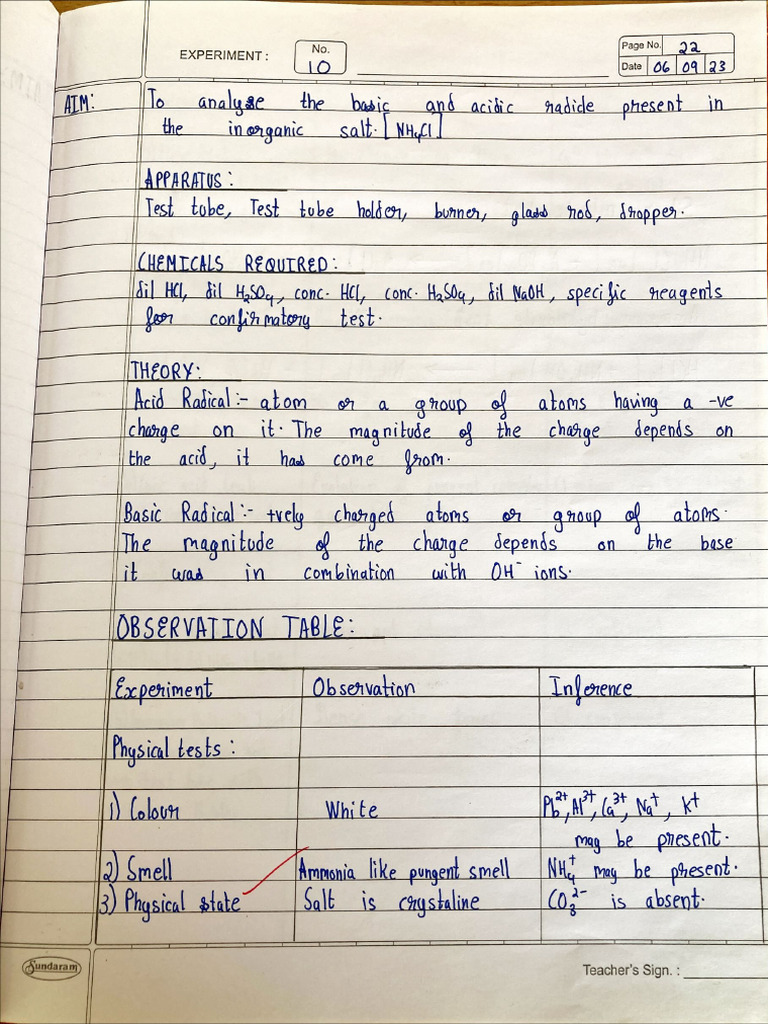 EXPERIMENT : No. 10
Page No. 22
Date 06 09 23
AIM: To analyse the basic and acidic radicle present in
the inorganic salt. [NH₄Cl]
APPARATUS :
Test tube, Test tube holder, burner, glass rod, dropper.
CHEMICALS REQUIRED :
dil HCl, dil H₂SO₄, conc. HCl, conc. H₂SO₄, dil NaOH, specific reagents
for confirmatory test.
THEORY:
Acid Radical :- atom or a group of atoms having a -ve
charge on it. The magnitude of the charge depends on
the acid, it has come from.
Basic Radical :- +vely charged atoms or group of atoms.
The magnitude of the charge depends on the base
it was in combination with OH⁻ ions.
OBSERVATION TABLE :
Experiment Observation Inference
Physical tests :
1) Colour White Pb²⁺, Al³⁺, Ca³⁺, Na⁺, K⁺
may be present.
2) Smell Ammonia like pungent smell NH₄⁺ may be present.
3) Physical state Salt is crystaline CO₃²⁻ is absent.
Sundaram Teacher's Sign. :